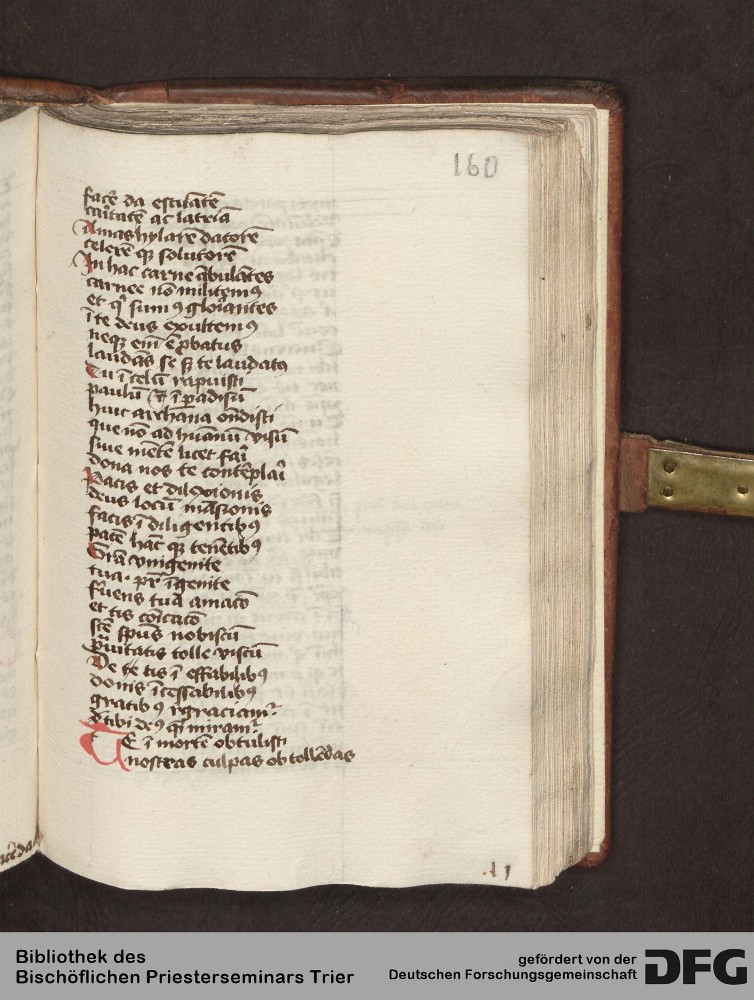 160
facē da estuātē
caritatē ac latriā
Amas hylarē datorē
celerē qꝫ solutorē
In hac carne ābulātes
carnee nō militemꝰ
et qͥ sumꝰ gloriantes
ī te deus exultemꝰ
neqꝫ em̄ ē ꝓbatus
laudās se sꝫ te laudatꝰ
Tu ī celū rapuisti
paulū et ī padisū
huic archana ondisti
que nō ad humanū visū
siue mēte licet
dona nos te contēplari
Pacis et dilcōionis
deus locū māsionis
facis ī diligentibꝰ
pacē hāc qꝫ tenētibꝰ
Gr̄a vnigenite
tua pr̄ īgenite
fuens tua amacō
et tis cōicacō
scē spūs nobiscū
puitatis tolle viscū
De te tis ī effabilibꝰ
donis īcessabilibꝰ
gratibꝰ rgraciamᷣ
tibi deꝰ qm miramᷣ
TE ī mortē obtulisti
nostras culpas ob tollēdas
Bibliothek des
Bischöflichen Priesterseminars Trier
gefördert von der
Deutschen Forschungsgemeinschaft
DFG